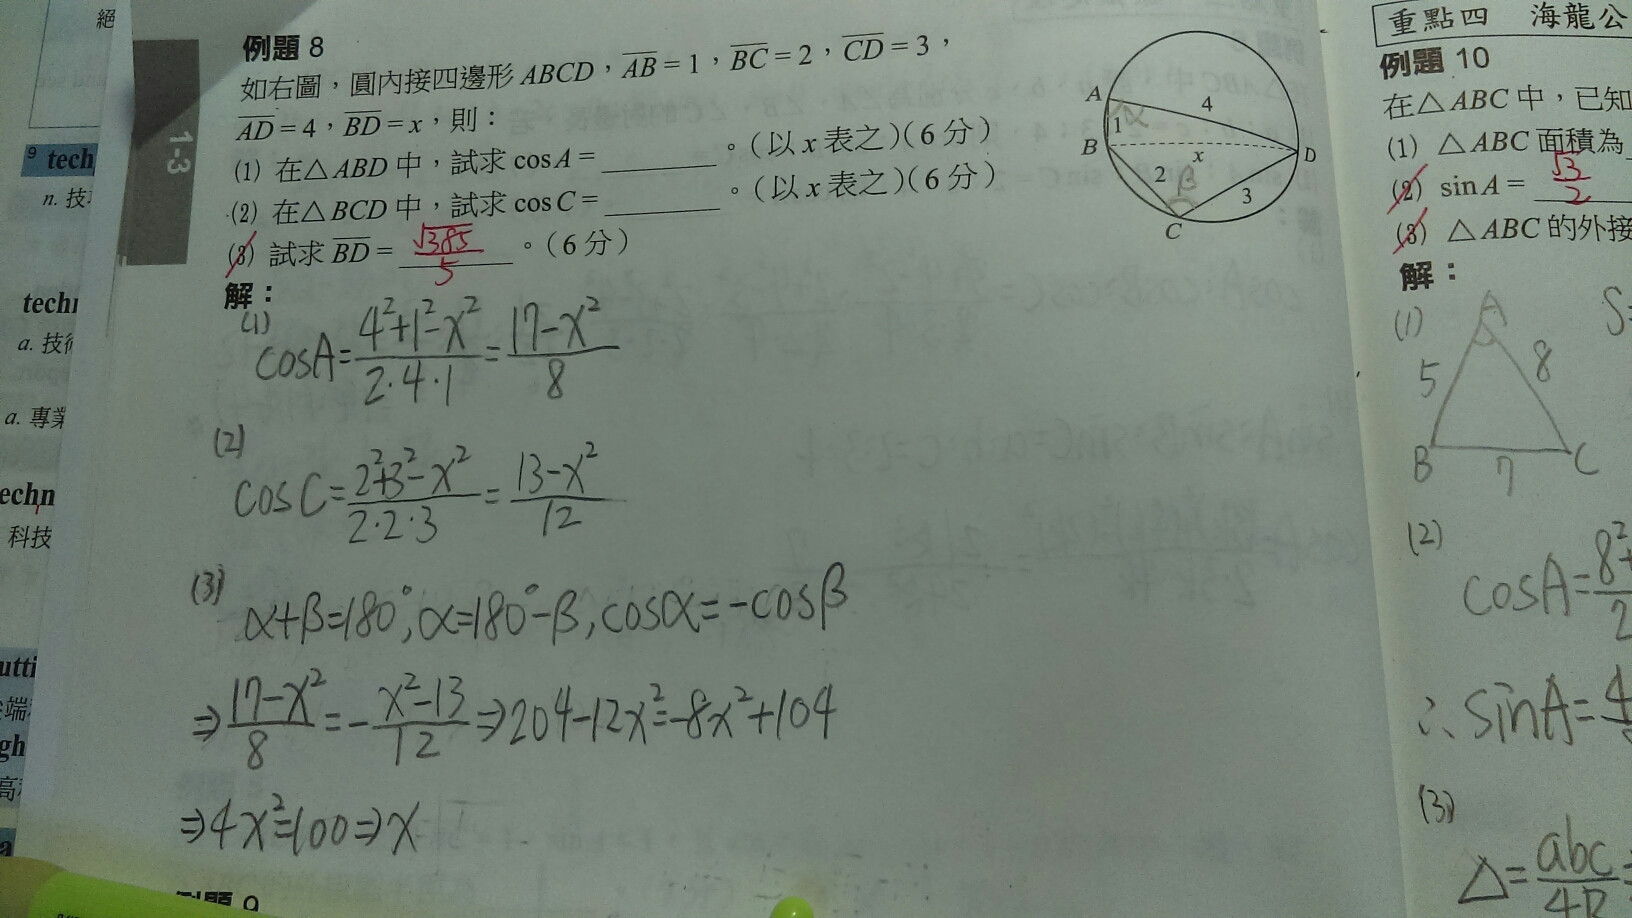 絕
9 tech
n. 技
techn
a. 技術
a. 專業
techn
科技
1-3
例題 8
如右圖，圓內接四邊形 ABCD，AB = 1，BC = 2，CD = 3，
AD = 4，BD = x，則：
(1) 在△ABD 中，試求 cos A = ________。(以 x 表之)(6 分)
(2) 在△BCD 中，試求 cos C = ________。(以 x 表之)(6 分)
(3) 試求 BD = √385/5 。(6 分)
A 4
1 α
B x D
2 β 3
C
解：
(1)
cosA = (4²+1²-x²)/(2·4·1) = (17-x²)/8
(2)
cosC = (2²+3²-x²)/(2·2·3) = (13-x²)/12
(3)
α+β=180°, α=180°-β, cosα=-cosβ
⇒ (17-x²)/8 = -(x²-13)/12 ⇒ 204-12x²=-8x²+104
⇒ 4x²=100 ⇒ x
例題 9
重點四 海龍公
例題 10
在△ABC 中，已知
(1) △ABC 面積為
(2) sin A = √3/2
(3) △ABC 的外接
解：
(1)
A
5 8
B 7 C
(2)
cosA=
∴ sinA=
(3)
△= abc/4R